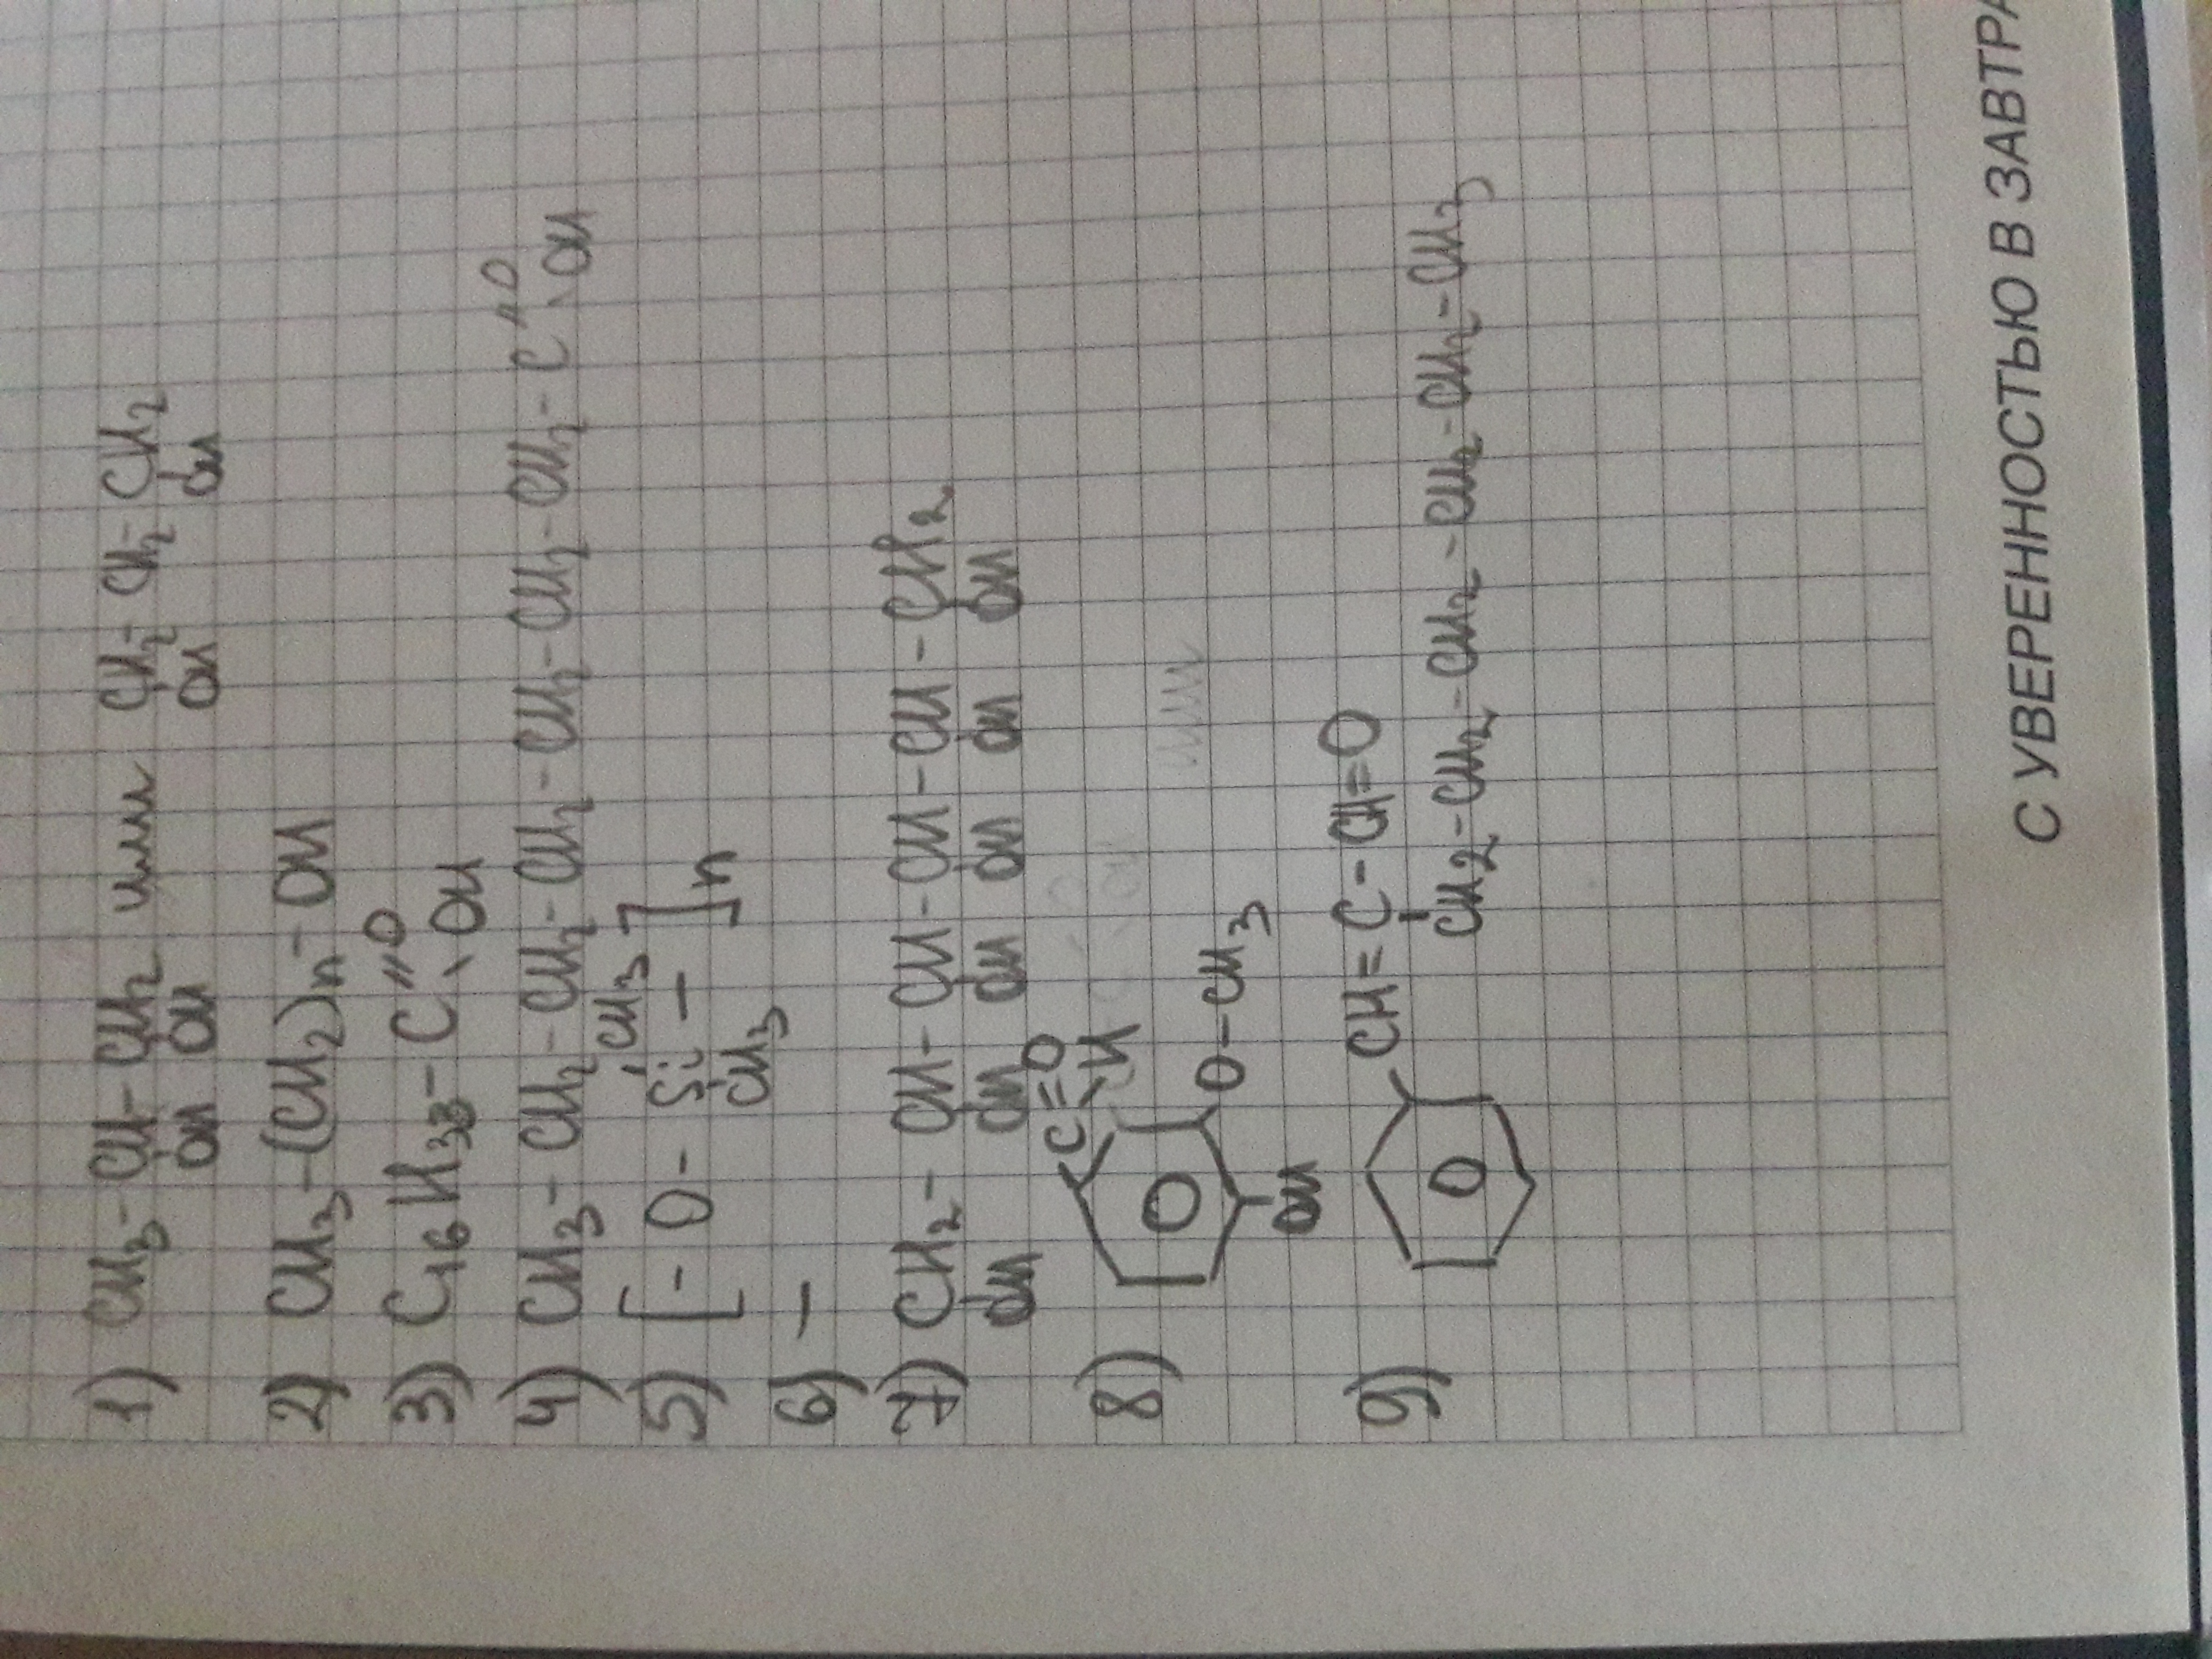 1) CH3-CH-CH2 или CH2-CH2-CH2
OH OH OH OH
2) CH3-(CH2)n-OH
3) C16H33-C=O
OH
4) CH3-CH2-CH2-CH2-CH2-CH2-CH2-CH2-C=O
OH
CH3
5) [-O-Si-]n
CH3
6) —
7) CH2-CH-CH-CH-CH-CH2
OH OH OH OH OH OH
C=O
8) H
O-CH3
OH
9) CH=C-CH=O
CH2-CH2-CH2-CH2-CH2-CH3
С УВЕРЕННОСТЬЮ В ЗАВТРА